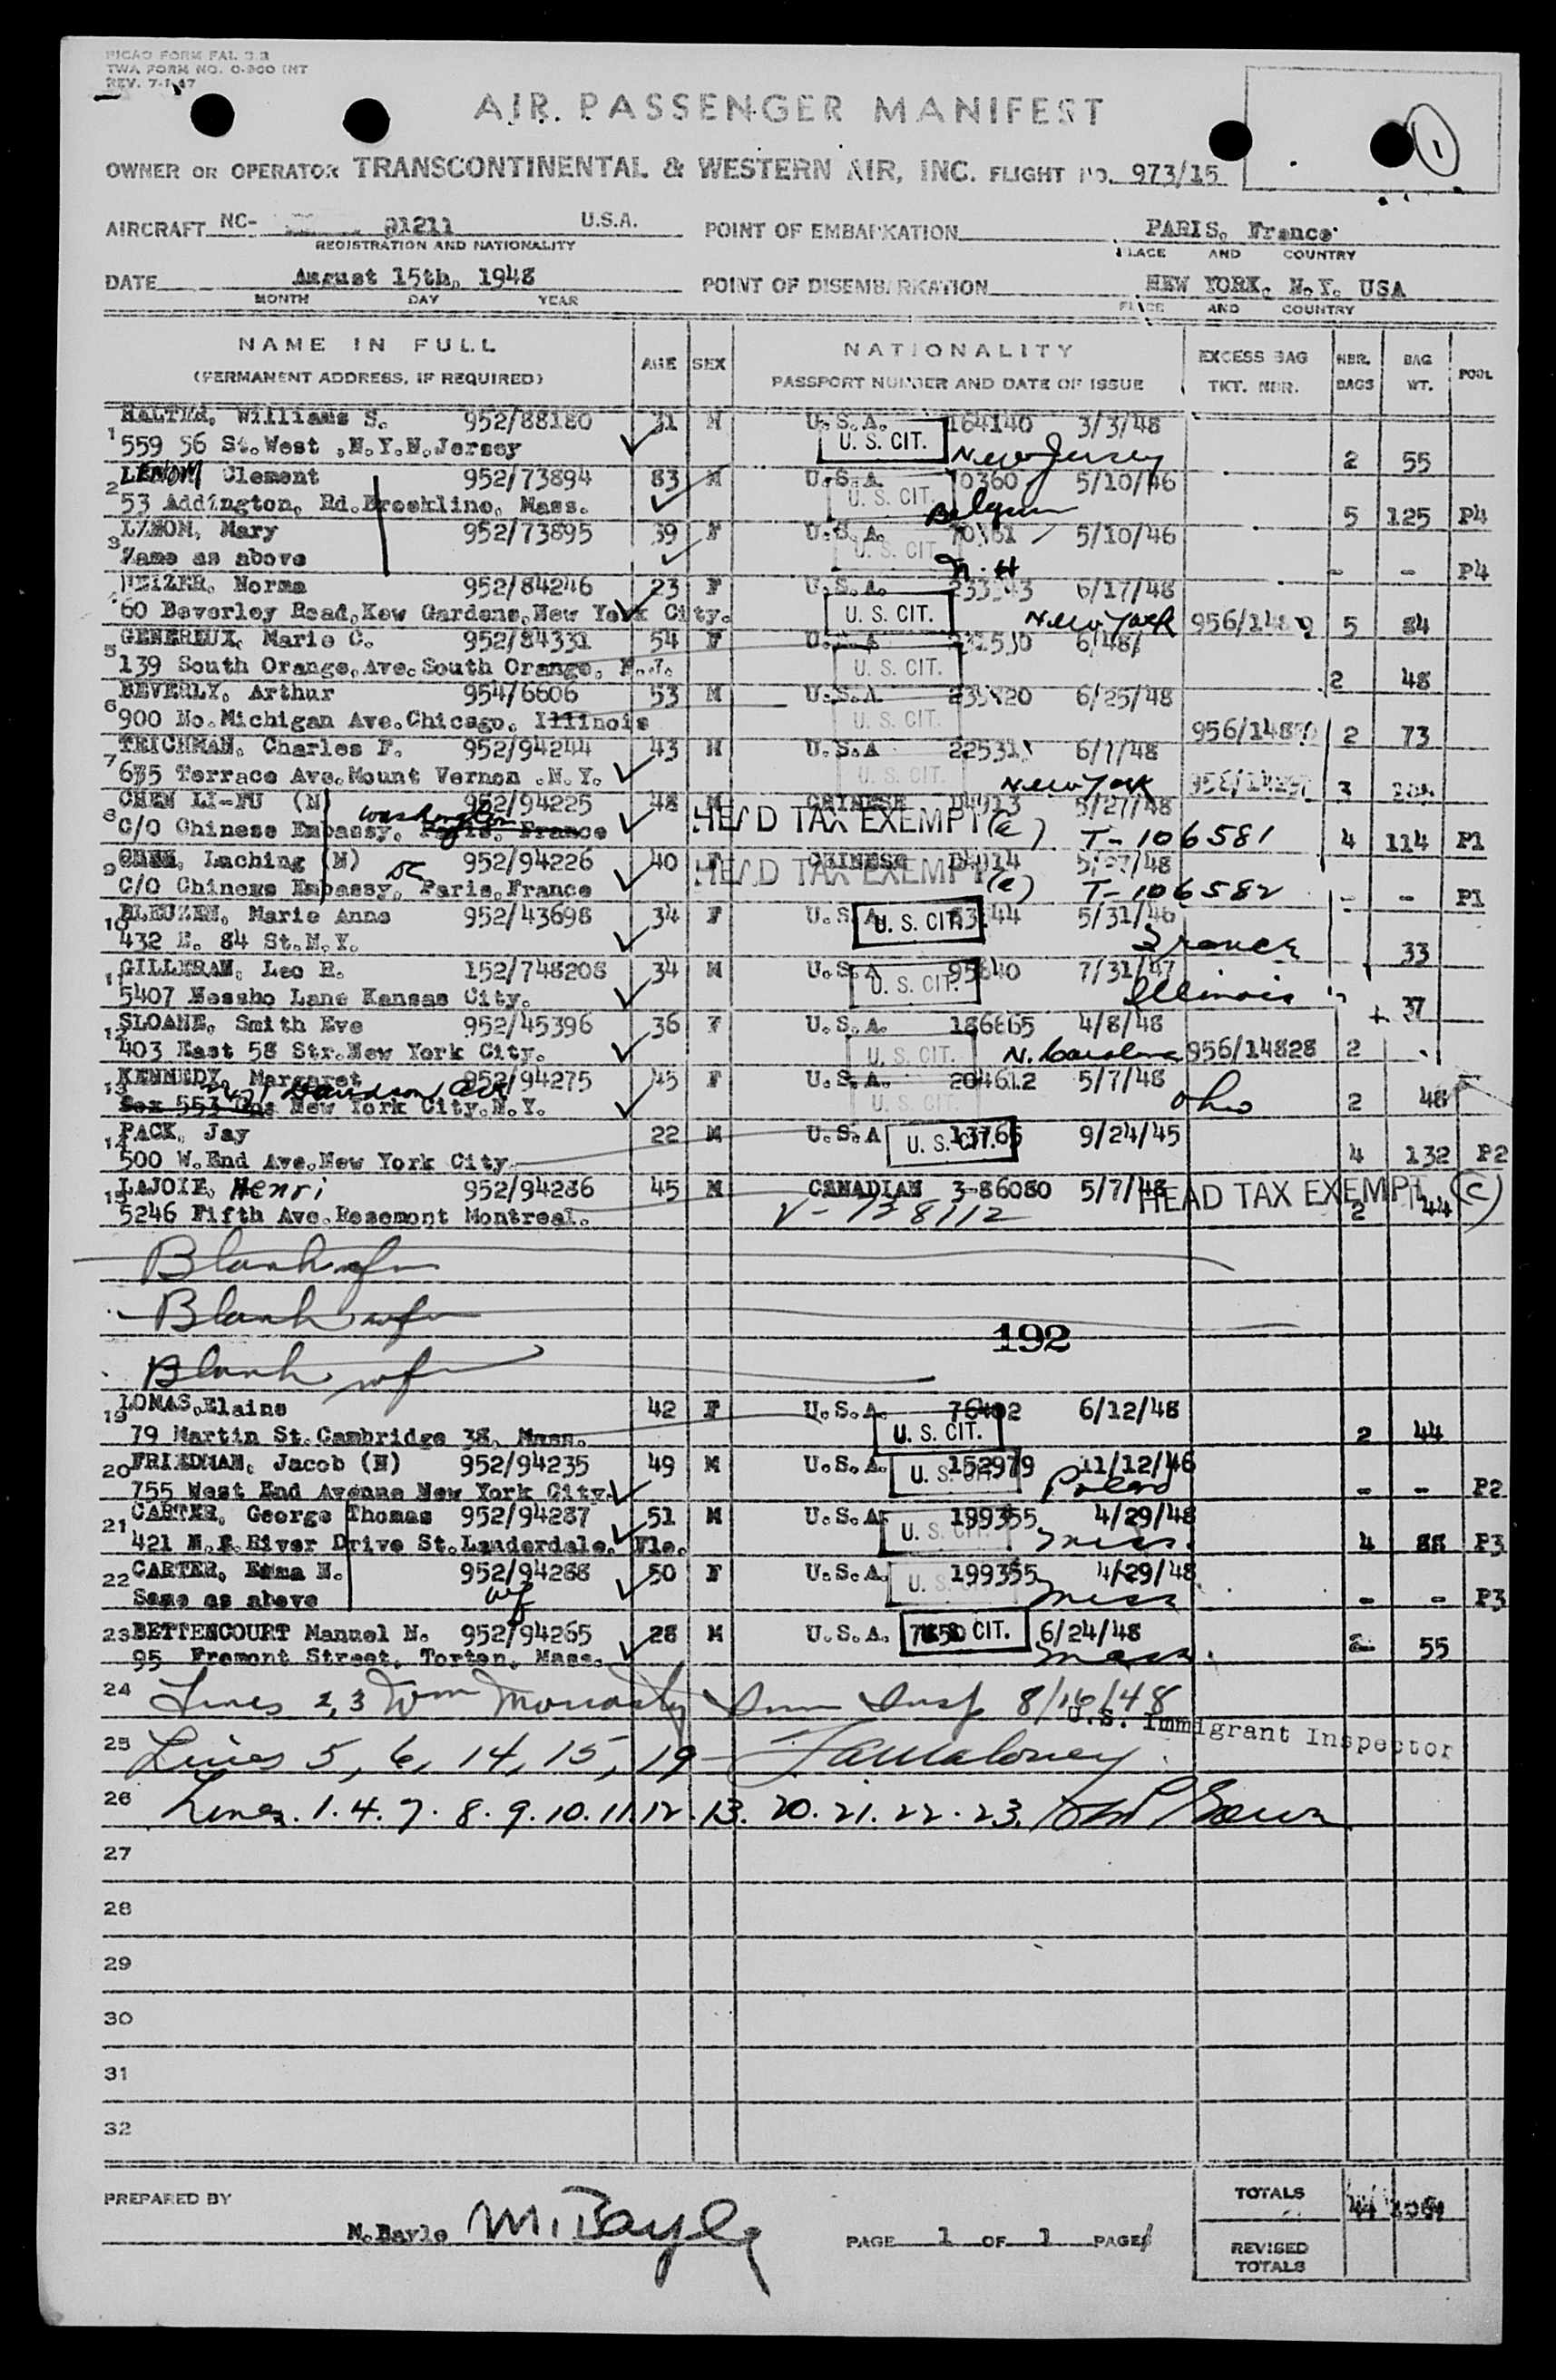 PICAO FORM FAL 3.2
TWA FORM NO. O-800 INT
REV. 7-1-47
AIR PASSENGER MANIFEST
1
OWNER OR OPERATOR TRANSCONTINENTAL & WESTERN AIR, INC. FLIGHT NO. 973/15
AIRCRAFT NC- 91211 U.S.A. POINT OF EMBARKATION PARIS, France
REGISTRATION AND NATIONALITY PLACE AND COUNTRY
DATE August 15th, 1948 POINT OF DISEMBARKATION NEW YORK, N.Y. USA
MONTH DAY YEAR PLACE AND COUNTRY
NAME IN FULL AGE SEX NATIONALITY EXCESS BAG NBR. BAG POOL
(PERMANENT ADDRESS, IF REQUIRED) PASSPORT NUMBER AND DATE OF ISSUE TKT. NBR. BAGS WT.
Williams S. 952/88180 31 M U.S.A. 164140 3/3/48
1 559 56 St.West ,N.Y.N.Jersey U. S. CIT. New Jersey 2 55
LEMOM Clement 952/73894 83 M U.S.A. 70360 5/10/46
2 53 Addington, Rd.Brookline, Mass. U. S. CIT. Belgium 5 125 P4
LEMOM, Mary 952/73895 39 F U.S.A. 70361 5/10/46
3 Same as above U. S. CIT. N.H - - P4
Norma 952/84246 23 F U.S.A. 6/17/48
4 60 Beverley Road,Kew Gardens,New York City. U. S. CIT. New York 5 84
GENEREUX, Marie C. 952/84331 54 F U.S.A. 6/48/
5 139 South Orange,Ave.South Orange, N.J. U. S. CIT. 2 48
BEVERLY, Arthur 954/6606 53 M U.S.A. 6/25/48
6 900 No.Michigan Ave.Chicago, Illinois U. S. CIT. 2 73
TEICHMAN, Charles F. 952/94244 43 M U.S.A 6/7/48
7 675 Terrace Ave.Mount Vernon .N.Y. U. S. CIT. New York 3
CHEN LI-FU (N) 952/94225 48 M CHINESE D4913 5/27/48
8 C/O Chinese Embassy, Paris, France Washington HEAD TAX EXEMPT (e) T-106581 4 114 P1
CHEN, Luching (N) 952/94226 40 F CHINESE D4914 5/27/48
9 C/O Chinese Embassy, Paris,France DC HEAD TAX EXEMPT (e) T-106582 - - P1
BLEUZEN, Marie Anne 952/43698 34 F U.S.A. 5/31/46
10 432 E. 84 St.N.Y. U. S. CIT. France 33
GILLERAN, Leo R. 152/748208 34 M U.S.A 95640 7/31/47
11 5407 Lane Kansas City. U. S. CIT. Illinois 37
SLOANE, Smith Eve 952/45396 36 F U.S.A. 186665 4/8/48
12 403 East 58 Str.New York City. U. S. CIT. N. Carolina 956/14828 2
KENNEDY, Margaret 952/94275 45 F U.S.A. 204612 5/7/48
13 Box 553 New York City.N.Y. U. S. CIT. Ohio 2 48
PACK, Jay 22 M U.S.A 13765 9/24/45
14 500 W.End Ave.New York City U. S. CIT. 4 132 P2
LAJOIE, Henri 952/94286 45 M CANADIAN 3-86080 5/7/48
15 5246 Fifth Ave.Rosemont Montreal. V-728112 HEAD TAX EXEMPT (c) 2 44
Blank
Blank
192
Blank
LOMAS,Elaine 42 F U.S.A. 76402 6/12/48
19 79 Martin St.Cambridge 38, Mass. U. S. CIT. 2 44
20 FRIEDMAN, Jacob (N) 952/94235 49 M U.S.A. 152979 11/12/46
755 West End Avenue New York City. U. S. CIT. Poland - - P2
21 CARTER, George Thomas 952/94287 51 M U.S.A. 199355 4/29/48
421 N.E.River Drive St.Lauderdale. Fla. U. S. CIT. Miss. 4 88 P3
22 CARTER, Emma N. 952/94288 50 F U.S.A. 199355 4/29/48
Same as above wf U. S. CIT. Miss - - P3
23 BETTENCOURT Manuel N. 952/94265 28 M U.S.A. U. S. CIT. 6/24/48
95 Fremont Street, Torten, Mass. Mass. 2 55
24 Lines 2,3 Wm Imm Insp 8/16/48
U.S. Immigrant Inspector
25 Lines 5, 6, 14, 15, 19
26 Lines. 1. 4. 7. 8. 9. 10. 11. 12. 13. 20. 21. 22. 23.
27
28
29
30
31
32
PREPARED BY TOTALS 44
M.Bayle M. Bayle PAGE 1 OF 1 PAGES
REVISED
TOTALS